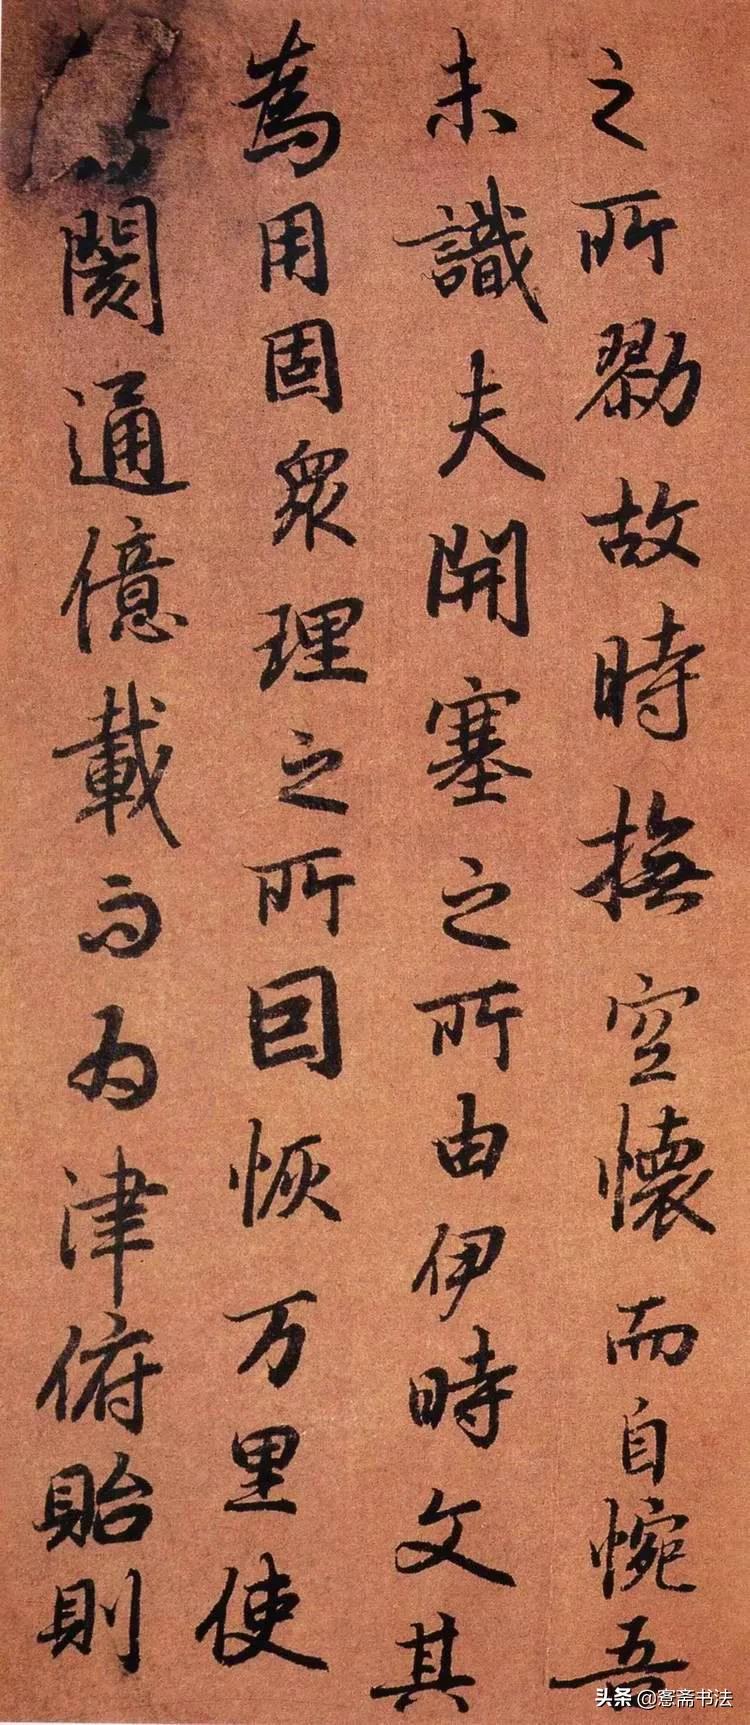 之所勠故時撫空懷而自惋吾
未識夫開塞之所由伊時文其
為用固衆理之所因恢万里使
閡通億載而為津俯貽則
头条 @愙斋书法